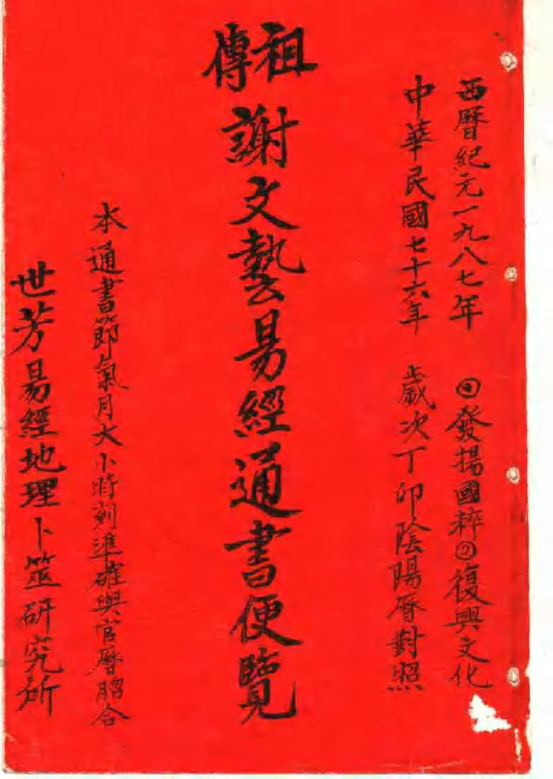 西曆紀元一九八七年 ㊀發揚國粹㊁復興文化
中華民國七十六年 歲次丁卯陰陽曆對照
祖傳 謝文藝易經通書便覽
本通書節氣月大小時刻準確與官曆脗合
世芳易經地理卜筮研究所